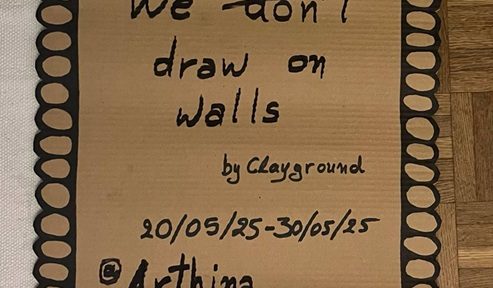 We don't
draw on
walls
by Clayground
20/05/25-30/05/25
@Arthina